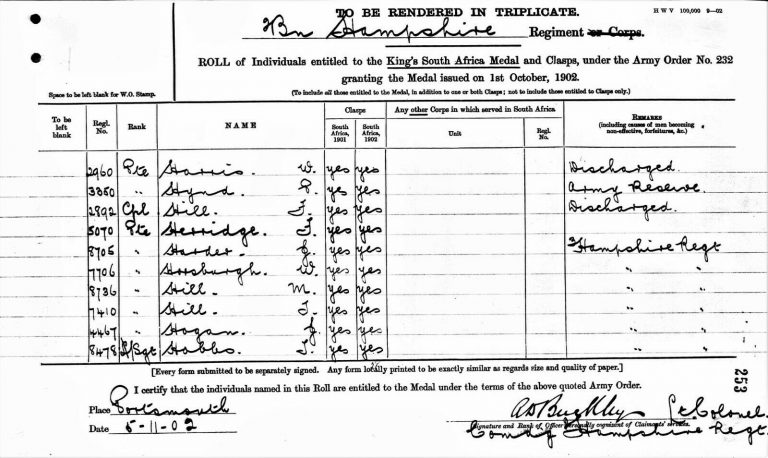 TO BE RENDERED IN TRIPLICATE.
H W V 100,000 9—02
Bn Hampshire Regiment or Corps.
ROLL of Individuals entitled to the King's South Africa Medal and Clasps, under the Army Order No. 232
granting the Medal issued on 1st October, 1902.
Space to be left blank for W.O. Stamp.
(To include all those entitled to the Medal, in addition to one or both Clasps; not to include those entitled to Clasps only.)
To be left blank Regl. No. Rank NAME Clasps South Africa, 1901 South Africa, 1902 Any other Corps in which served in South Africa Unit Regl. No. REMARKS (including causes of men becoming non-effective, forfeitures, &c.)
2960 Pte Harris. W. yes yes Discharged.
3350 " Hynd. yes yes Army Reserve.
2892 Cpl Hill. yes yes Discharged.
5070 Pte Herridge. yes yes
8705 " Harder. J. yes yes Hampshire Regt
7706 " Horsburgh. W. yes yes " "
8736 " Hill. M. yes yes " "
7410 " Hill. yes yes " "
4467 " Hogan. J. yes yes " "
8478 L/Sgt Hobbs. yes yes " "
[Every form submitted to be separately signed. Any form locally printed to be exactly similar as regards size and quality of paper.]
253
I certify that the individuals named in this Roll are entitled to the Medal under the terms of the above quoted Army Order.
Place Portsmouth
Lt Colonel.
Signature and Rank of Officer personally cognizant of Claimants' services.
Date 5-11-02
Comdg Hampshire Regt.